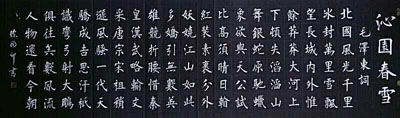 沁園春雪
毛澤東詞
北國風光千里
冰封萬里雪飄
望長城內外惟
餘莽莽大河上
下頓失滔滔山
舞銀蛇原馳蠟
象欲與天公試
比高須晴日看
紅裝素裹分外
妖嬈江山如此
多嬌引無數英
雄競折腰惜秦
皇漢武略輸文
采唐宗宋祖稍
遜風騷一代天
驕成吉思汗祇
識彎弓射大鵰
俱往矣數風流
人物還看今朝